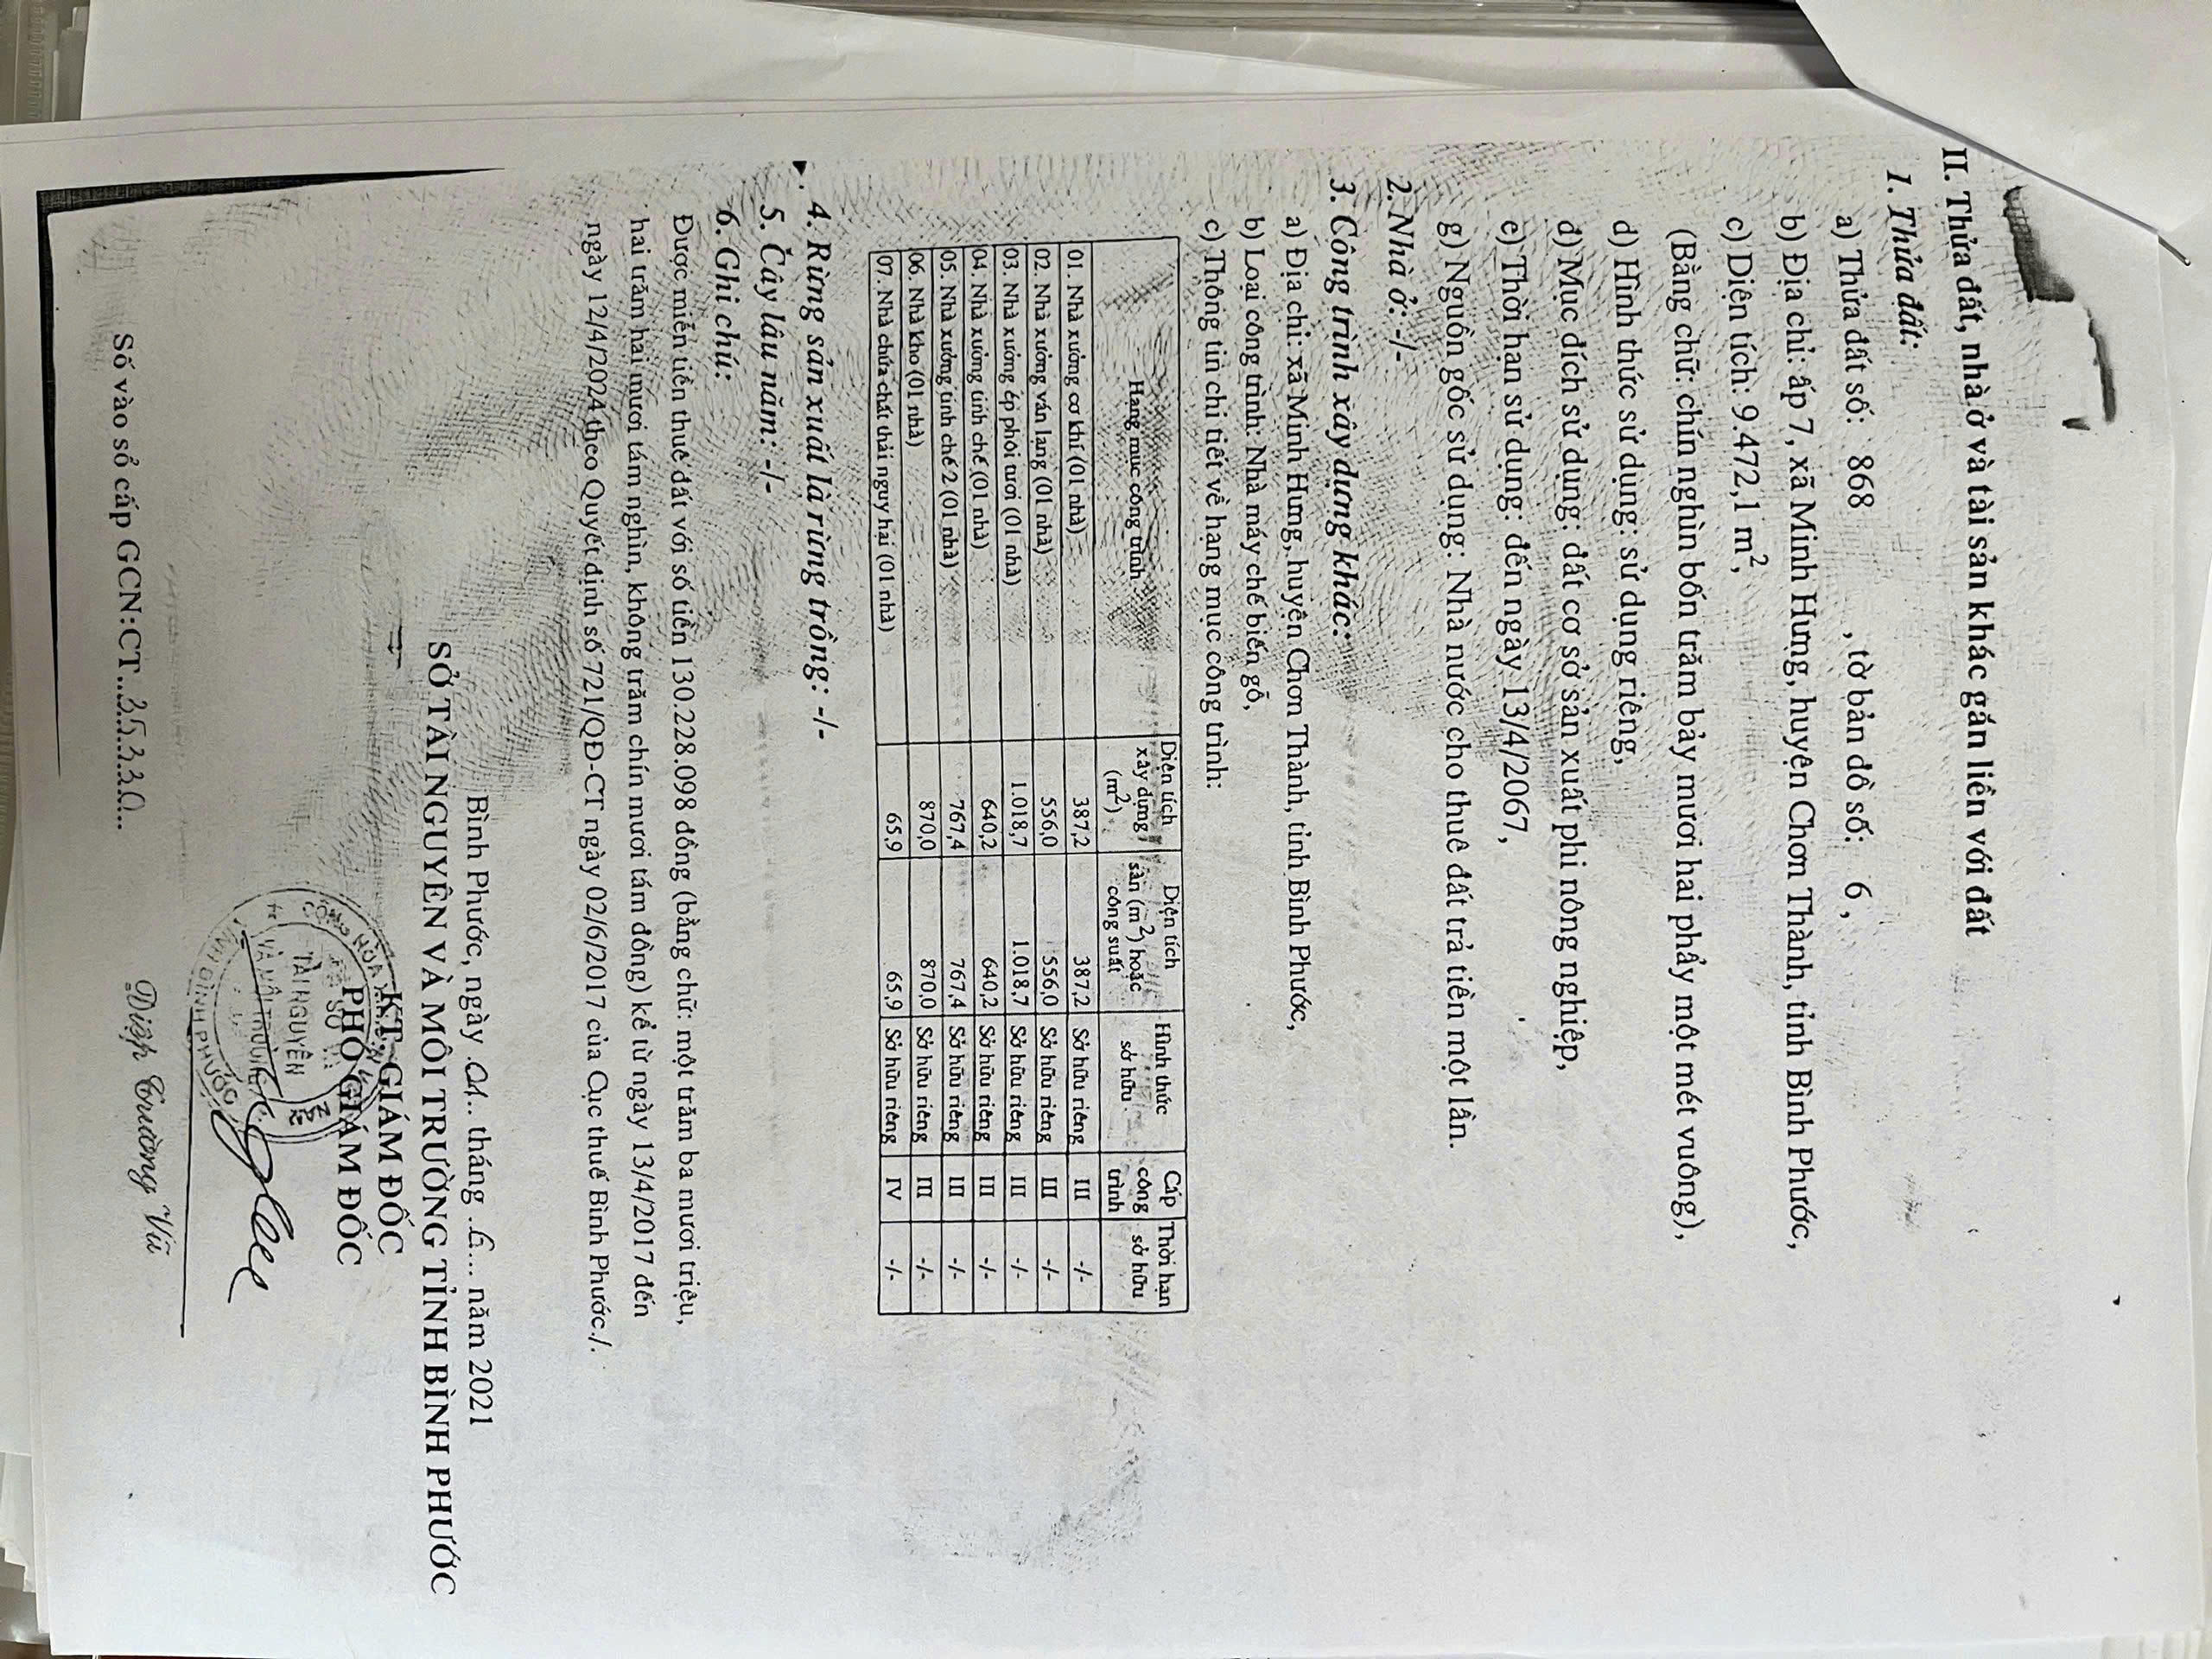 II. Thửa đất, nhà ở và tài sản khác gắn liền với đất
1. Thửa đất:
a) Thửa đất số: 868 , tờ bản đồ số: 6 ,
b) Địa chỉ: ấp 7, xã Minh Hưng, huyện Chơn Thành, tỉnh Bình Phước,
c) Diện tích: 9.472,1 m²,
(Bằng chữ: chín nghìn bốn trăm bảy mươi hai phẩy một mét vuông),
d) Hình thức sử dụng: sử dụng riêng,
đ) Mục đích sử dụng: đất cơ sở sản xuất phi nông nghiệp,
e) Thời hạn sử dụng: đến ngày 13/4/2067,
g) Nguồn gốc sử dụng: Nhà nước cho thuê đất trả tiền một lần.
2. Nhà ở: -/-
3. Công trình xây dựng khác:
a) Địa chỉ: xã Minh Hưng, huyện Chơn Thành, tỉnh Bình Phước,
b) Loại công trình: Nhà máy chế biến gỗ,
c) Thông tin chi tiết về hạng mục công trình:
Hạng mục công trình | Diện tích xây dựng (m²) | Diện tích sàn (m²) hoặc công suất | Hình thức sở hữu | Cấp công trình | Thời hạn sở hữu
01. Nhà xưởng cơ khí (01 nhà) | 387,2 | 387,2 | Sở hữu riêng | III | -/-
02. Nhà xưởng ván lạng (01 nhà) | 556,0 | 556,0 | Sở hữu riêng | III | -/-
03. Nhà xưởng ép phôi tươi (01 nhà) | 1.018,7 | 1.018,7 | Sở hữu riêng | III | -/-
04. Nhà xưởng tinh chế (01 nhà) | 640,2 | 640,2 | Sở hữu riêng | III | -/-
05. Nhà xưởng tinh chế 2 (01 nhà) | 767,4 | 767,4 | Sở hữu riêng | III | -/-
06. Nhà kho (01 nhà) | 870,0 | 870,0 | Sở hữu riêng | III | -/-
07. Nhà chứa chất thải nguy hại (01 nhà) | 65,9 | 65,9 | Sở hữu riêng | IV | -/-
4. Rừng sản xuất là rừng trồng: -/-
5. Cây lâu năm: -/-
6. Ghi chú:
Được miễn tiền thuê đất với số tiền 130.228.098 đồng (bằng chữ: một trăm ba mươi triệu,
hai trăm hai mươi tám nghìn, không trăm chín mươi tám đồng) kể từ ngày 13/4/2017 đến
ngày 12/4/2024 theo Quyết định số 721/QĐ-CT ngày 02/6/2017 của Cục thuế Bình Phước./.
Bình Phước, ngày 01 tháng 6 năm 2021
SỞ TÀI NGUYÊN VÀ MÔI TRƯỜNG TỈNH BÌNH PHƯỚC
KT. GIÁM ĐỐC
PHÓ GIÁM ĐỐC
SỞ
TÀI NGUYÊN
VÀ MÔI TRƯỜNG
TỈNH BÌNH PHƯỚC
Diệp Trường Vũ
Số vào sổ cấp GCN: CT...35330...